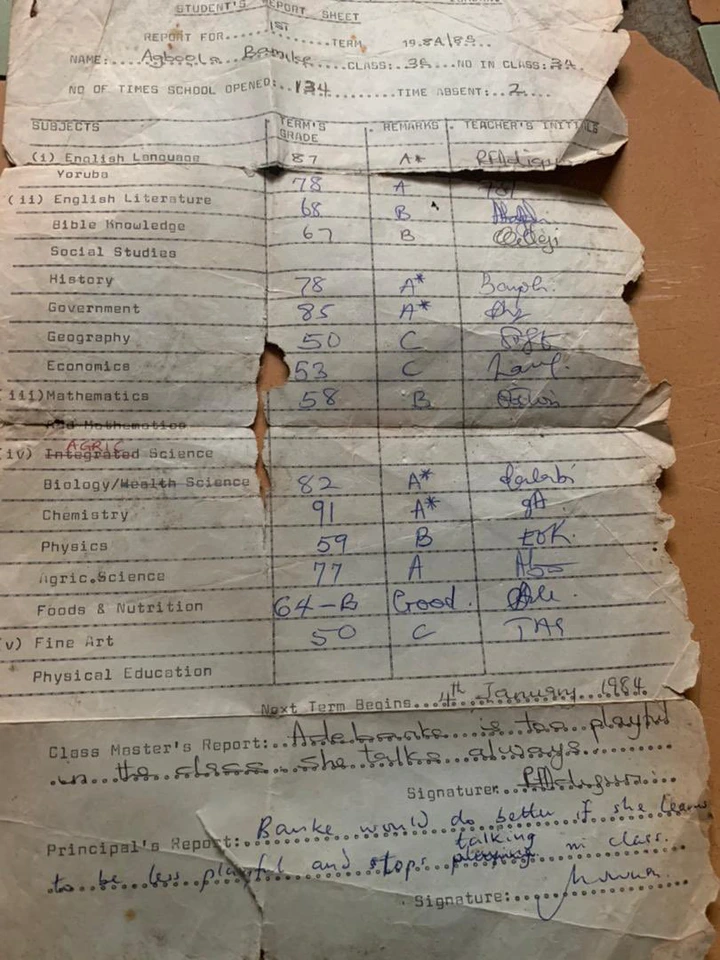 STUDENT'S REPORT SHEET
REPORT FOR....1ST....TERM 1984/85..
NAME:....Agboola Banke....CLASS:.3C..NO IN CLASS:34.
NO OF TIMES SCHOOL OPENED:.134........TIME ABSENT:..2....
SUBJECTS TERM'S GRADE REMARKS TEACHER'S INITIALS
(i) English Language 87 A*
Yoruba 78 A
(ii) English Literature 68 B
Bible Knowledge 67 B
Social Studies
History 78 A*
Government 85 A*
Geography 50 C
Economics 53 C
(iii)Mathematics 58 B
Add Mathematics
AGRIC
(iv) Integrated Science
Biology/Health Science 82 A*
Chemistry 91 A*
Physics 59 B
Agric.Science 77 A
Foods & Nutrition 64-B Good.
(v) Fine Art 50 C
Physical Education
Next Term Begins...4th January 1984
Class Master's Report:..Adebanke is too playful
in the class. she talks always.
Signature:
Principal's Report: Banke would do better if she learns
to be less playful and stops playing talking in class.
Signature: